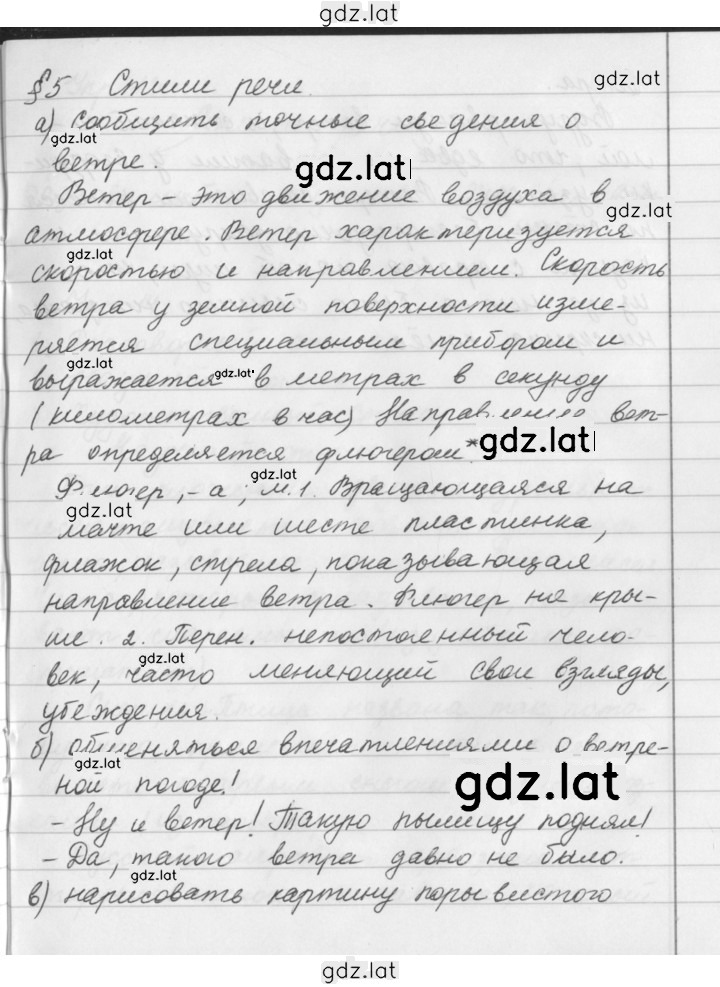 gdz.lat
§5 Стили речи.
gdz.lat
а) сообщить точные сведения о
gdz.lat
ветре.
gdz.lat
Ветер – это движение воздуха в
gdz.lat
атмосфере. Ветер характеризуется
скоростью и направлением. Скорость
ветра у земной поверхности изме-
ряется специальным прибором и
gdz.lat
выражается в метрах в секунду
gdz.lat
(километрах в час) Направление вет-
ра определяется флюгером*.
gdz.lat
Флюгер, -а, м. 1. Вращающаяся на
gdz.lat
gdz.lat
мачте или шесте пластинка,
флажок, стрела, показывающая
направление ветра. Флюгер на кры-
ше. 2. Перен. непостоянный чело-
gdz.lat
век, часто меняющий свои взгляды,
убеждения.
б) обменяться впечатлениями о ветре-
gdz.lat
ной погоде!
gdz.lat
– Ну и ветер! Такую пылищу поднял!
– Да, такого ветра давно не было.
gdz.lat
в) нарисовать картину порывистого
gdz.lat